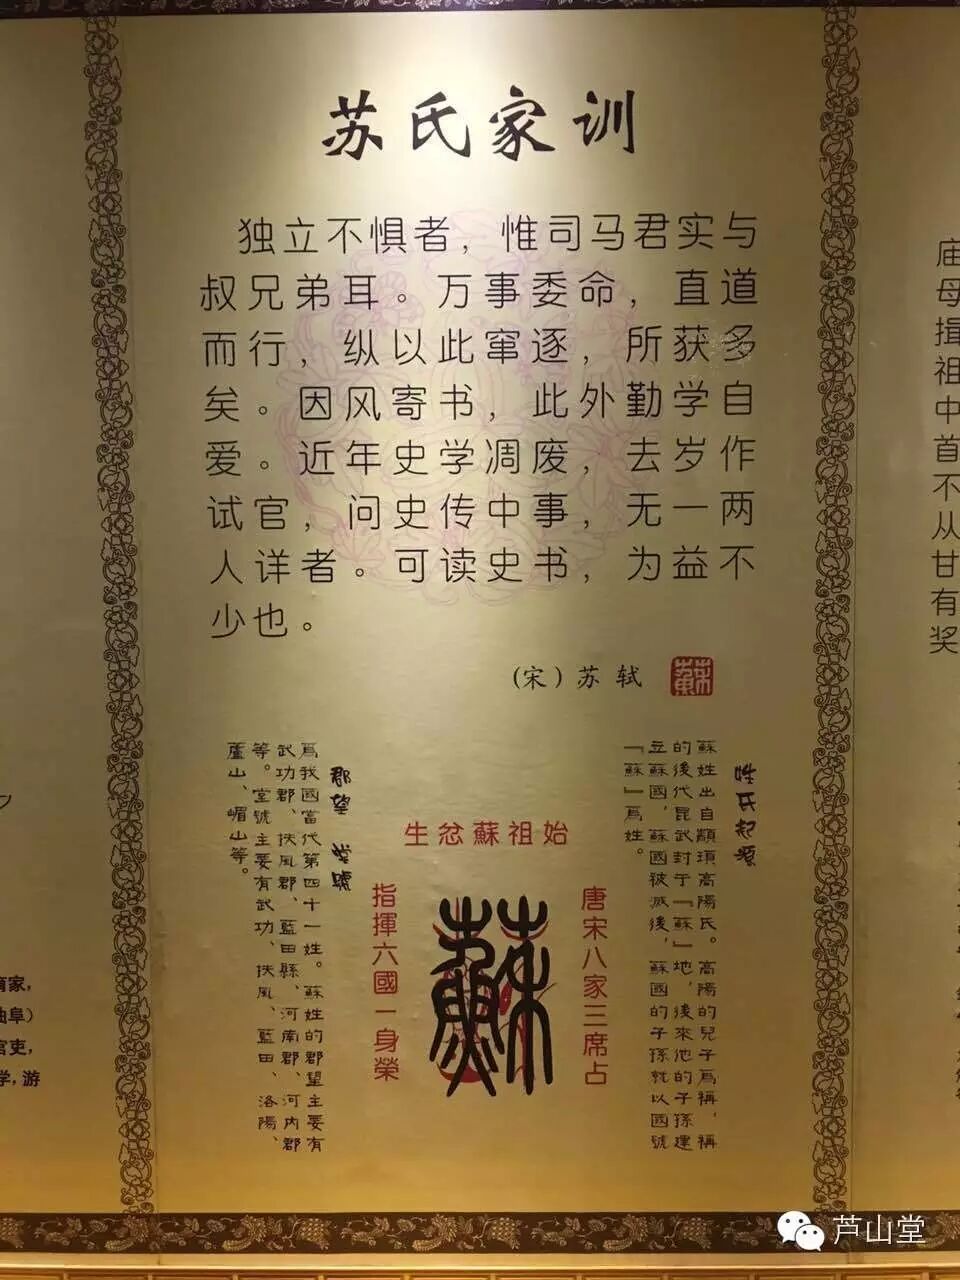 苏氏家训
独立不惧者，惟司马君实与
叔兄弟耳。万事委命，直道
而行，纵以此窜逐，所获多
矣。因风寄书，此外勤学自
爱。近年史学凋废，去岁作
试官，问史传中事，无一两
人详者。可读史书，为益不
少也。
(宋)苏轼
蘇
姓氏起源
蘇姓出自顓頊高陽氏。高陽的兒子爲稱，稱
的後代昆武封于『蘇』地，後來他的子孫建
立蘇國，蘇國被滅後，蘇國的子孫就以國號
『蘇』爲姓。
生忿蘇祖始
唐宋八家三席占
蘇
指揮六國一身榮
郡望 堂號
爲我國當代第四十一姓。蘇姓的郡望主要有
武功郡、扶風郡、藍田縣、河南郡、河内郡
等。堂號主要有武功、扶風、藍田、洛陽、
蘆山、嵋山等。
庙
母
揖
祖
中
首
不
从
甘
有
奖
育家，
曲阜）
官吏，
学，游
芦山堂